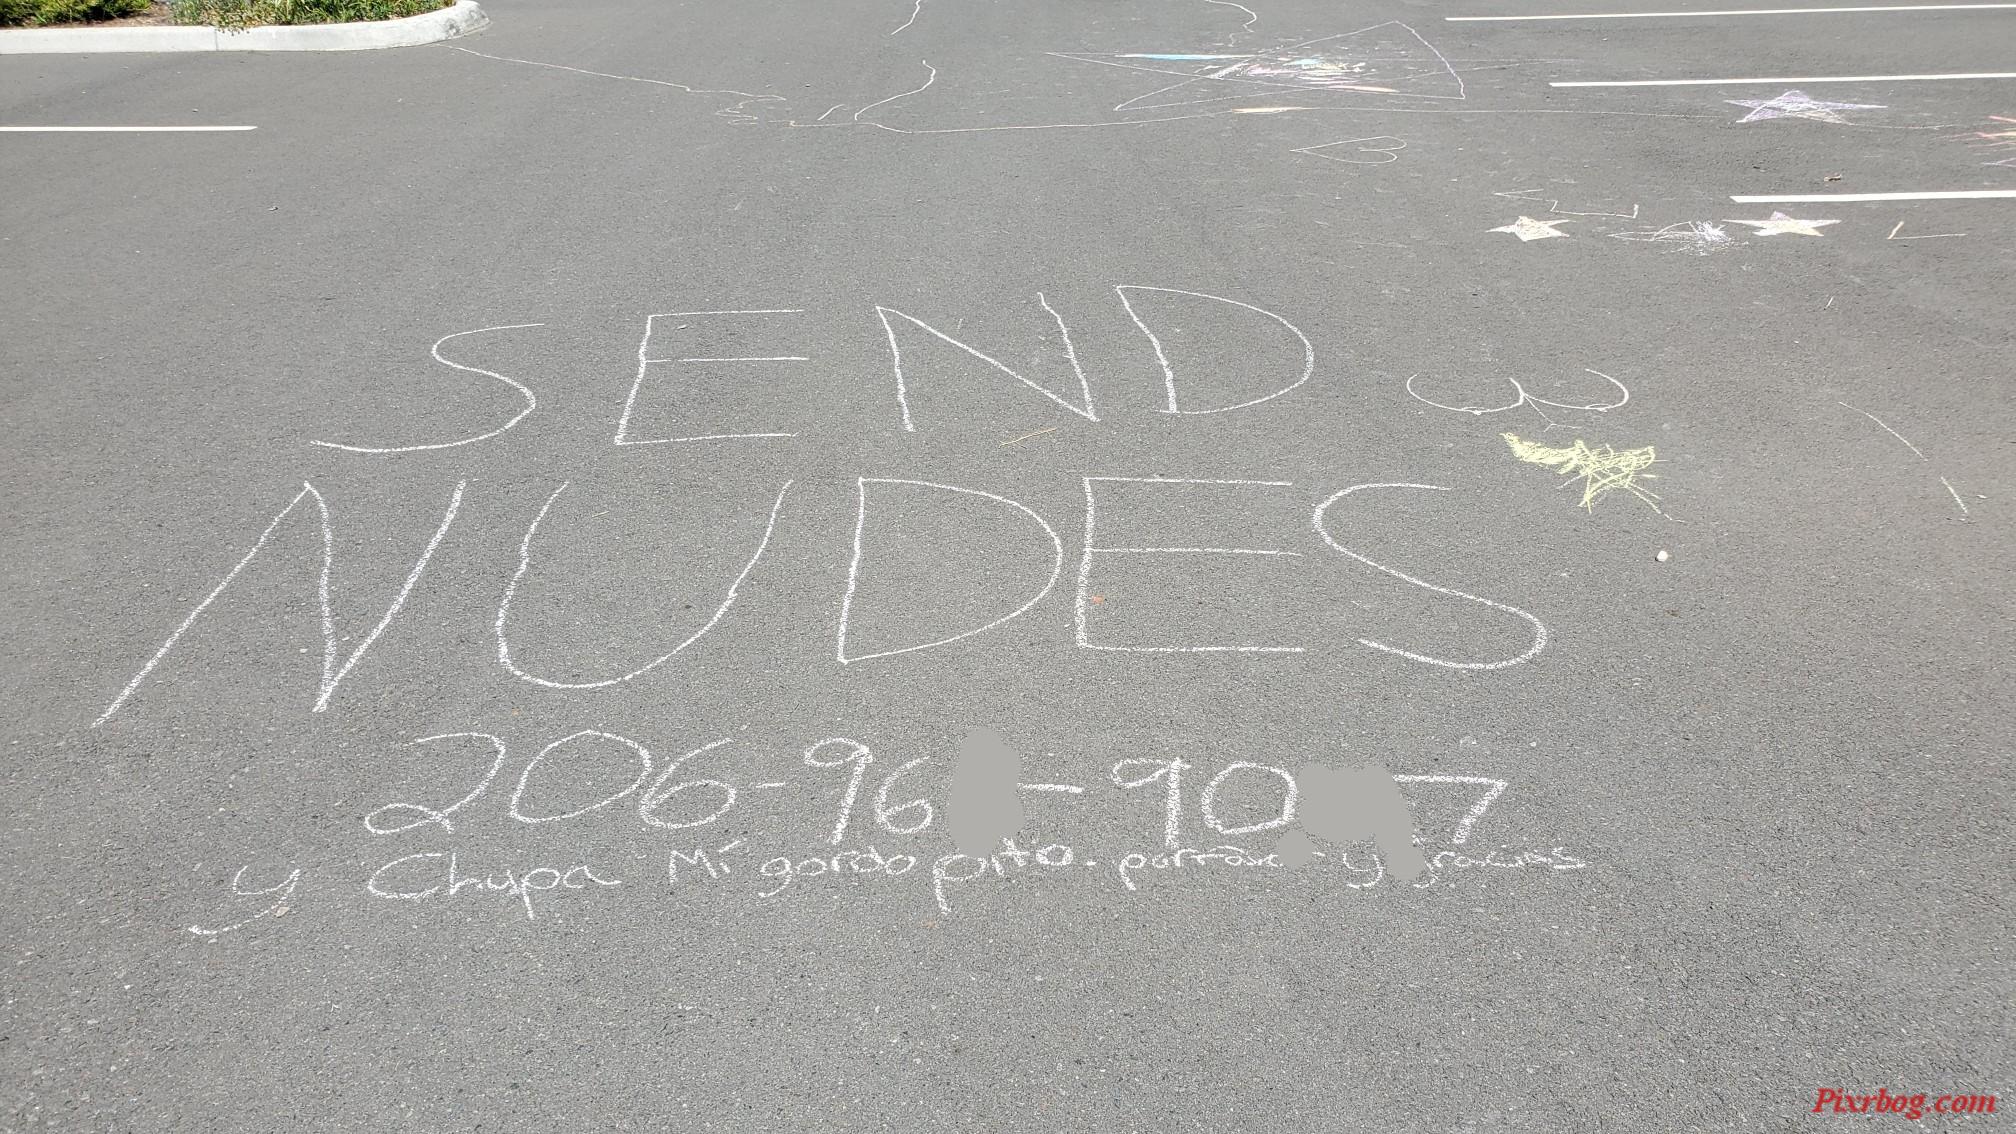 SEND
NUDES
206-96 - 90 7
y Chupa Mi gordo pito. y gracias
Pixrbog.com